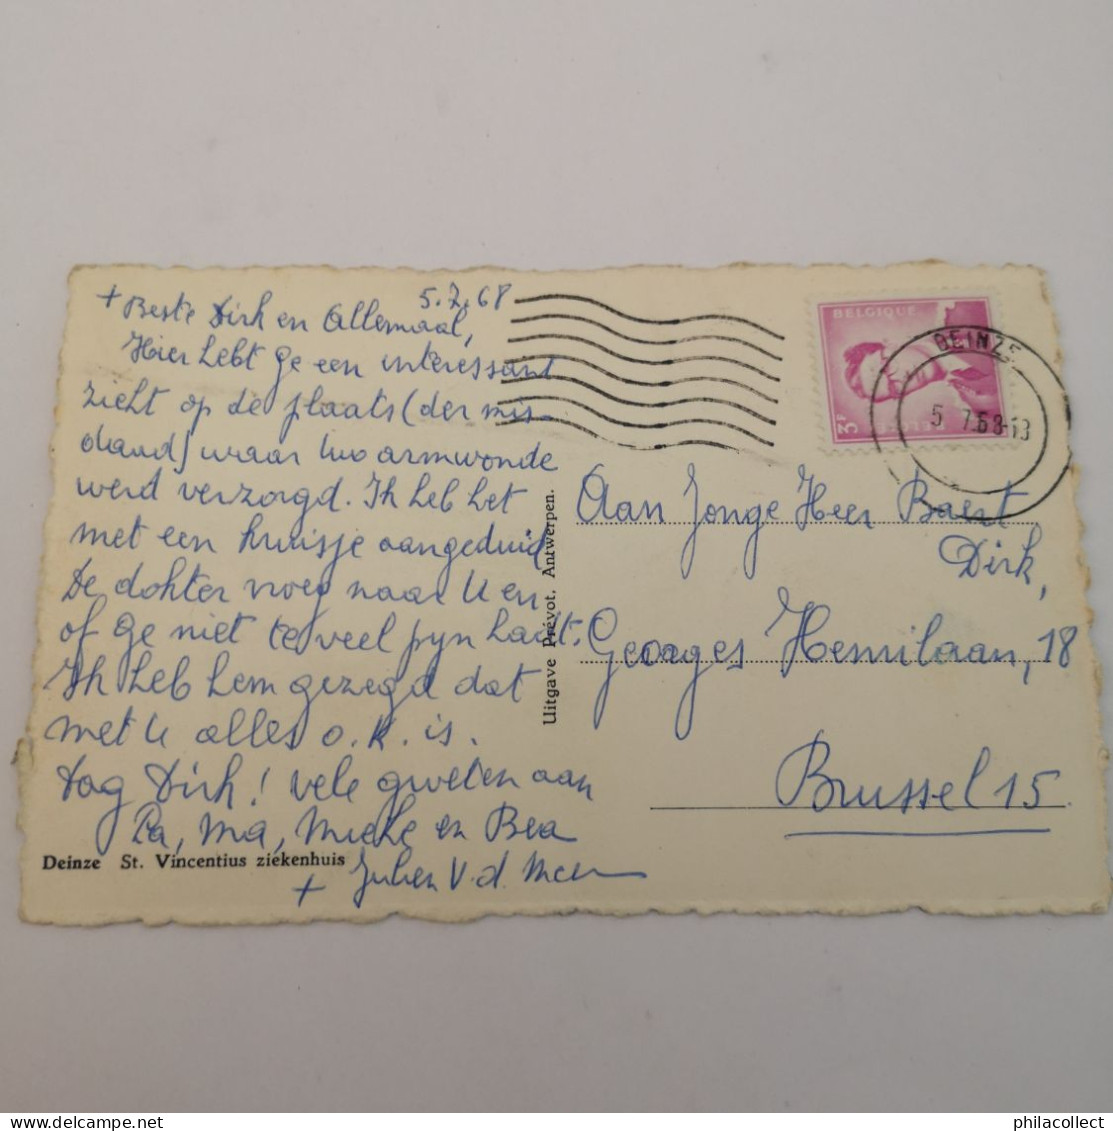 5.7.68
+ Beste Dirk en Allemaal,
Hier hebt ge een interessant
zicht op de plaats (der mis-
daad) waar uw armwonde
werd verzorgd. Ik heb het
met een kruisje aangeduid.
De dokter vroeg naar U en
of ge niet te veel pijn hadt.
Ik heb hem gezegd dat
met U alles o.k. is.
Dag Dirk! vele groeten aan
Pa, Ma, Mieke en Bea
+ Julien V.d.
Deinze St. Vincentius ziekenhuis
Uitgave Prévot, Antwerpen.
BELGIQUE
3F
DEINZE
5 7.68-13
Aan Jonge Heer Baert
Dirk,
Georges Henrilaan, 18
Brussel 15
philacollect